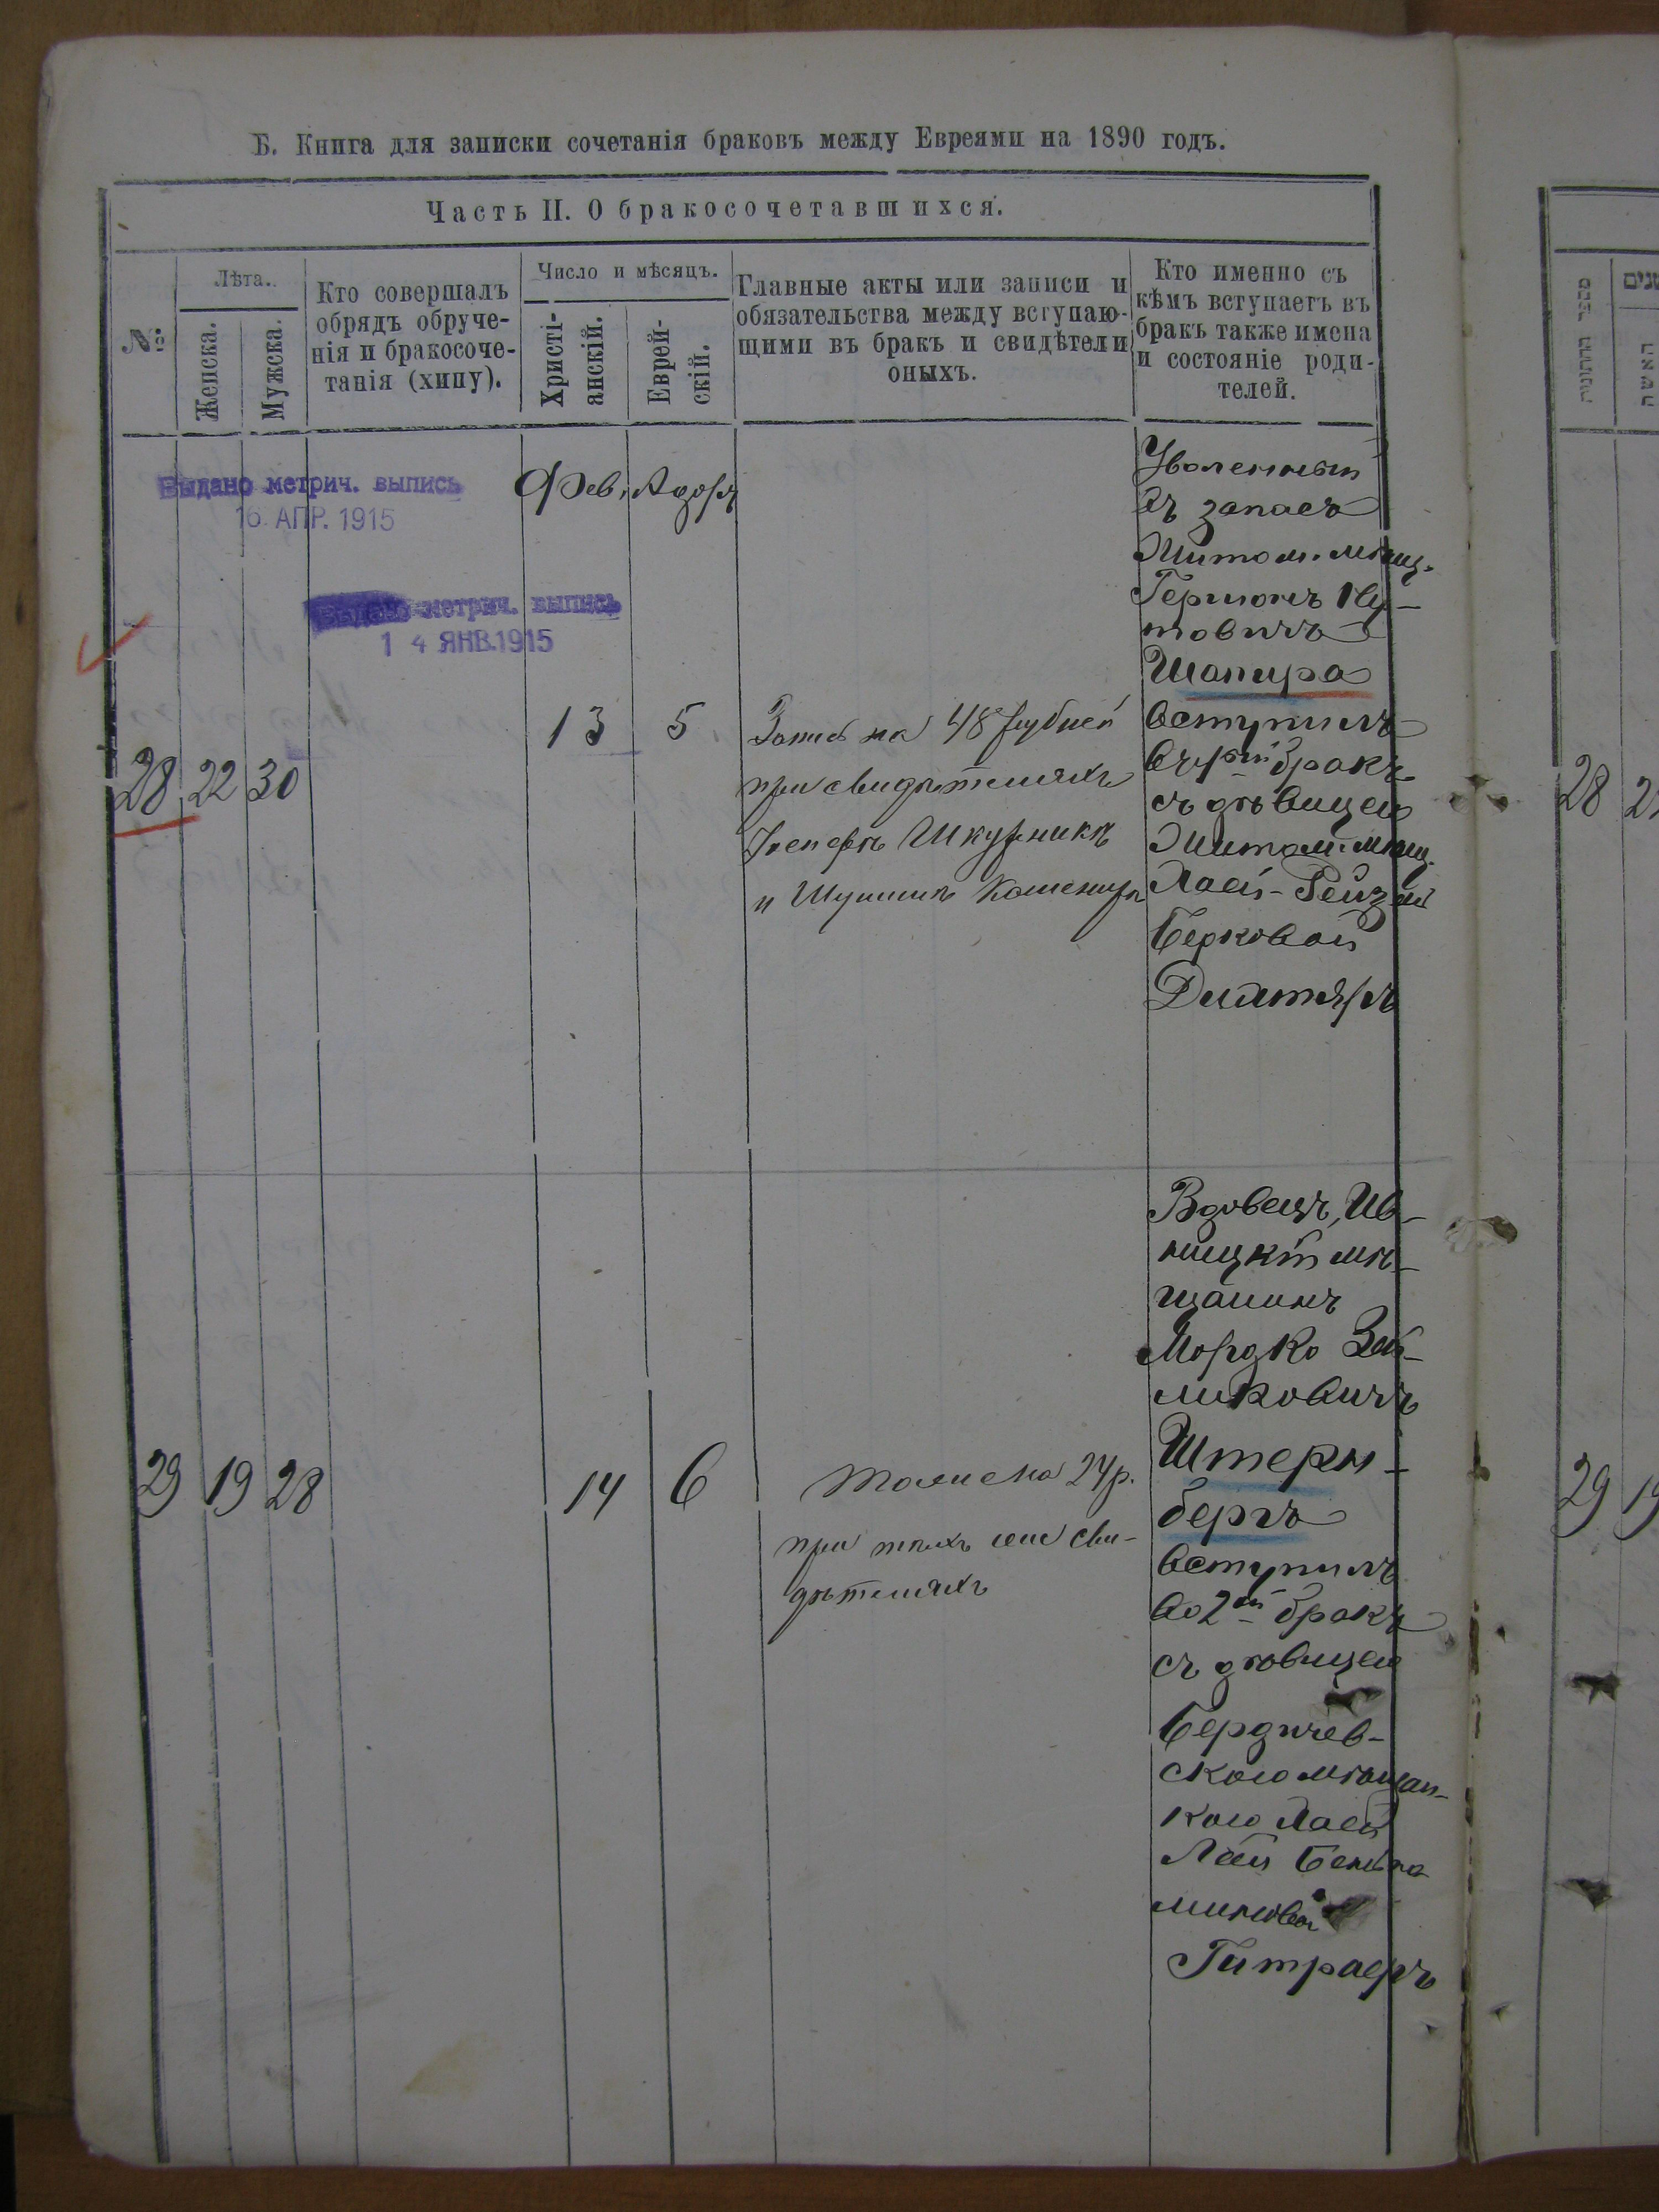 Б. Книга для записки сочетанія браковъ между Евреями на 1890 годъ.
Часть II. О бракосочетавшихся.
№
Лѣта.
Женска.
Мужска.
Кто совершалъ
обрядъ обруче-
нія и бракосоче-
танія (хипу).
Число и мѣсяцъ.
Христі-
анскій.
Еврей-
скій.
Главные акты или записи и
обязательства между вступаю-
щими въ бракъ и свидѣтели
оныхъ.
Кто именно съ
кѣмъ вступаетъ въ
бракъ также имена
и состояніе роди-
телей.
Выдано метрич. выпись
16. АПР. 1915
Выдано метрич. выпись
1 4 ЯНВ.1915
Фев. Адоръ
28 22 30
13 5
Запись на 48 рублей
при свидѣтеляхъ
Шкурникъ
и
Уволенный
въ запасъ
Житом. мѣщ.
Гершонъ Ну-
товичъ
Шапира
вступилъ
въ 1ый бракъ
съ дѣвицею
Житом. мѣщ.
Хаей-Рейзей
Берковой
Дихтяръ
29 19 28
14 6
тоже на 24 р.
при тѣхъ же сви-
дѣтеляхъ
Вдовецъ, Ив-
ницкій мѣ-
щанинъ
Мордко Зей-
ликовичъ
Штерн-
бергъ
вступилъ
во 2ой бракъ
съ дѣвицею
Бердичев-
скою мѣщан-
кою Хаей
Леей Беньями-
миновой